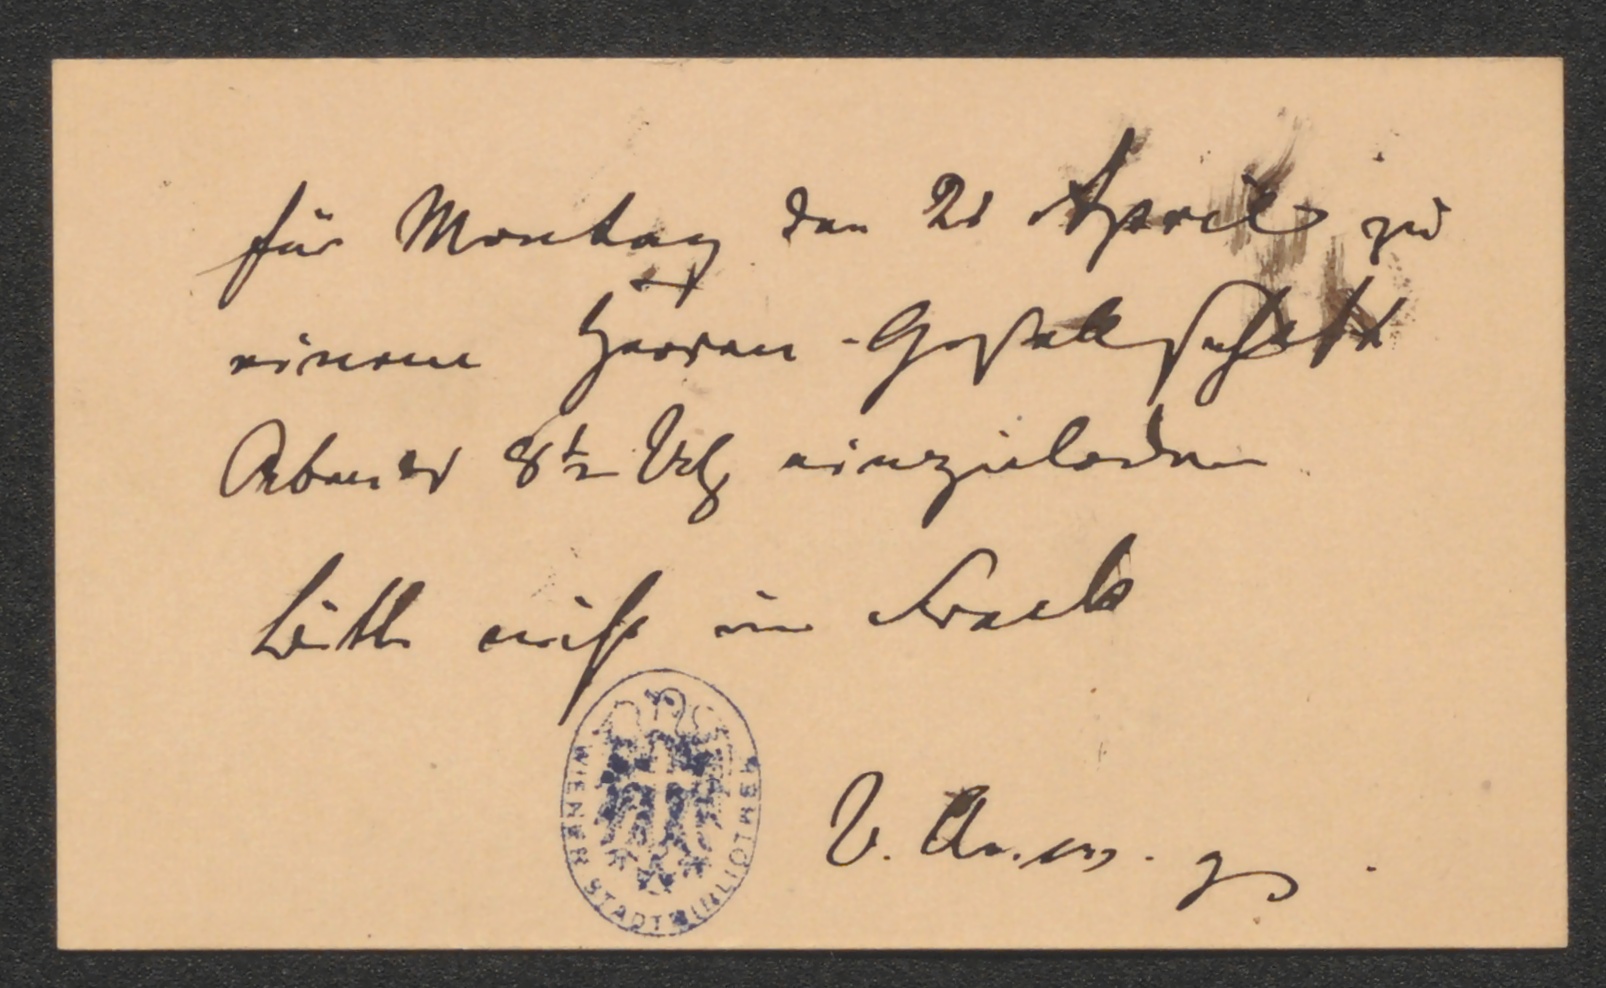 für Montag den 21 April zu
einem Herren-Gesellschaft
Abends 8½ Uhr einzuladen
bitte nicht im Frack
U. A. w. g.
WIENER STADTBIBLIOTHEK